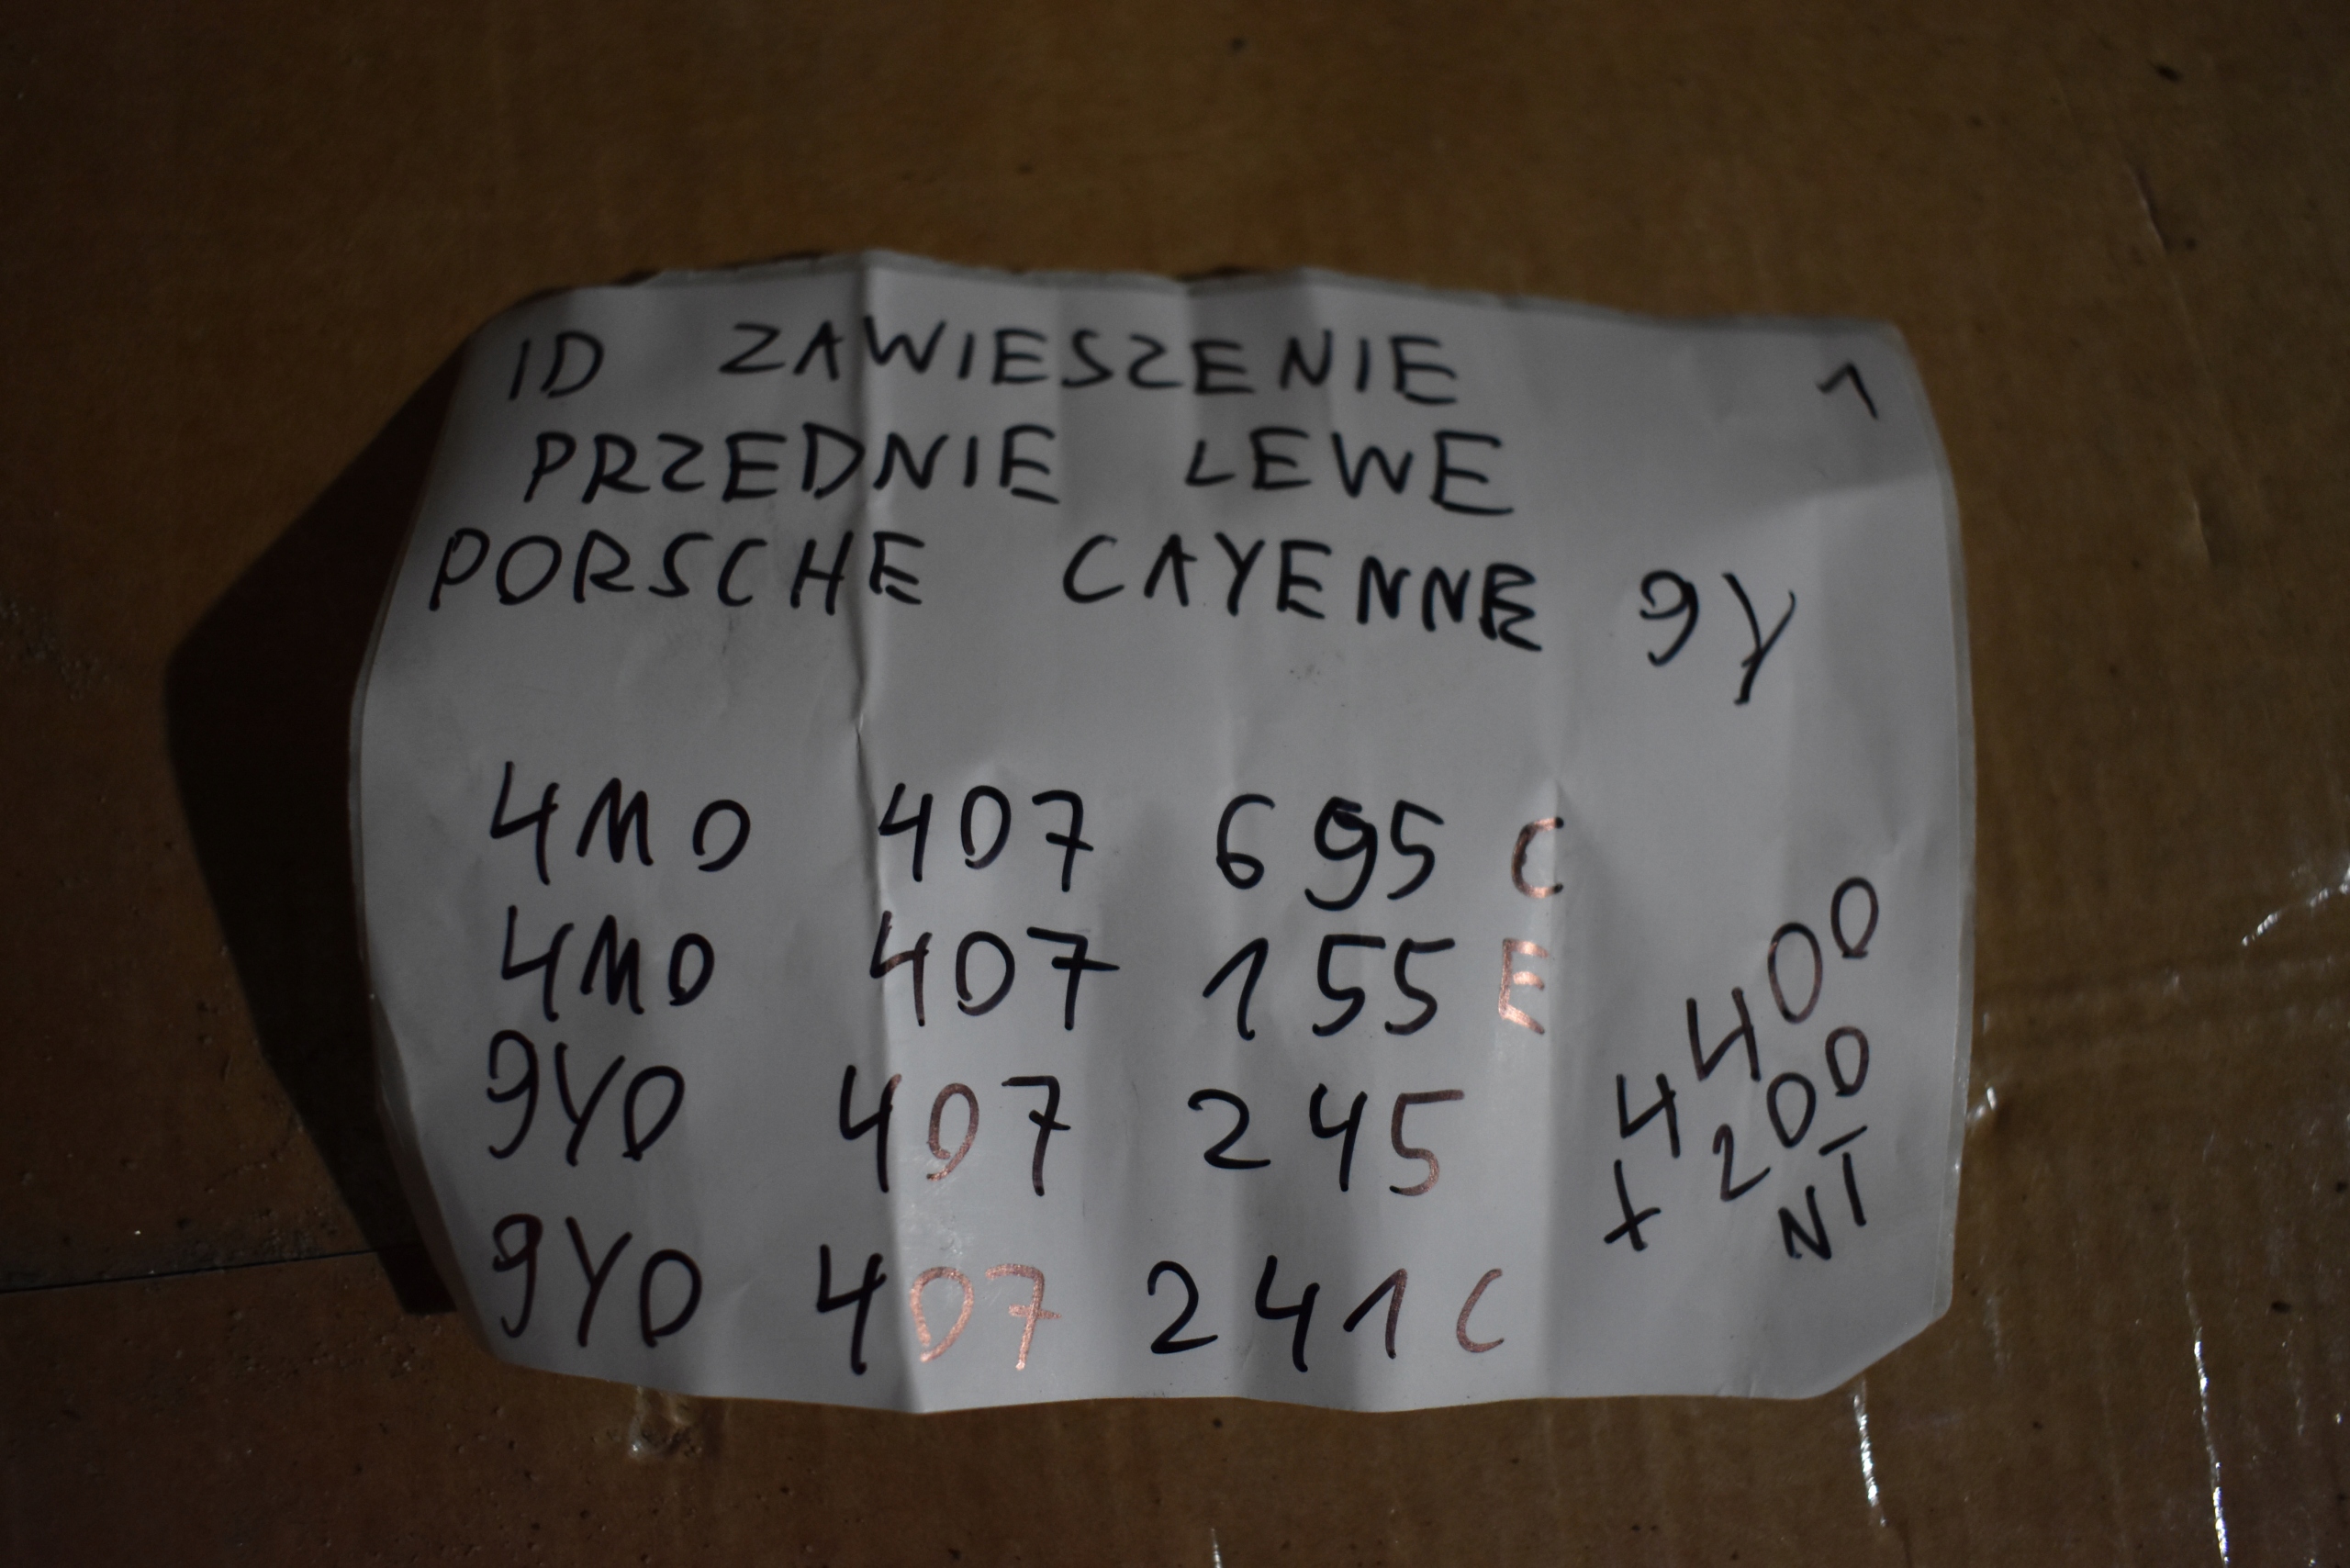 ID ZAWIESZENIE 1
PRZEDNIE LEWE
PORSCHE CAYENNE 9Y
4M0 407 695 C
4M0 407 155 E
9Y0 407 245
9Y0 407 241 C
4400
+ 200
NT